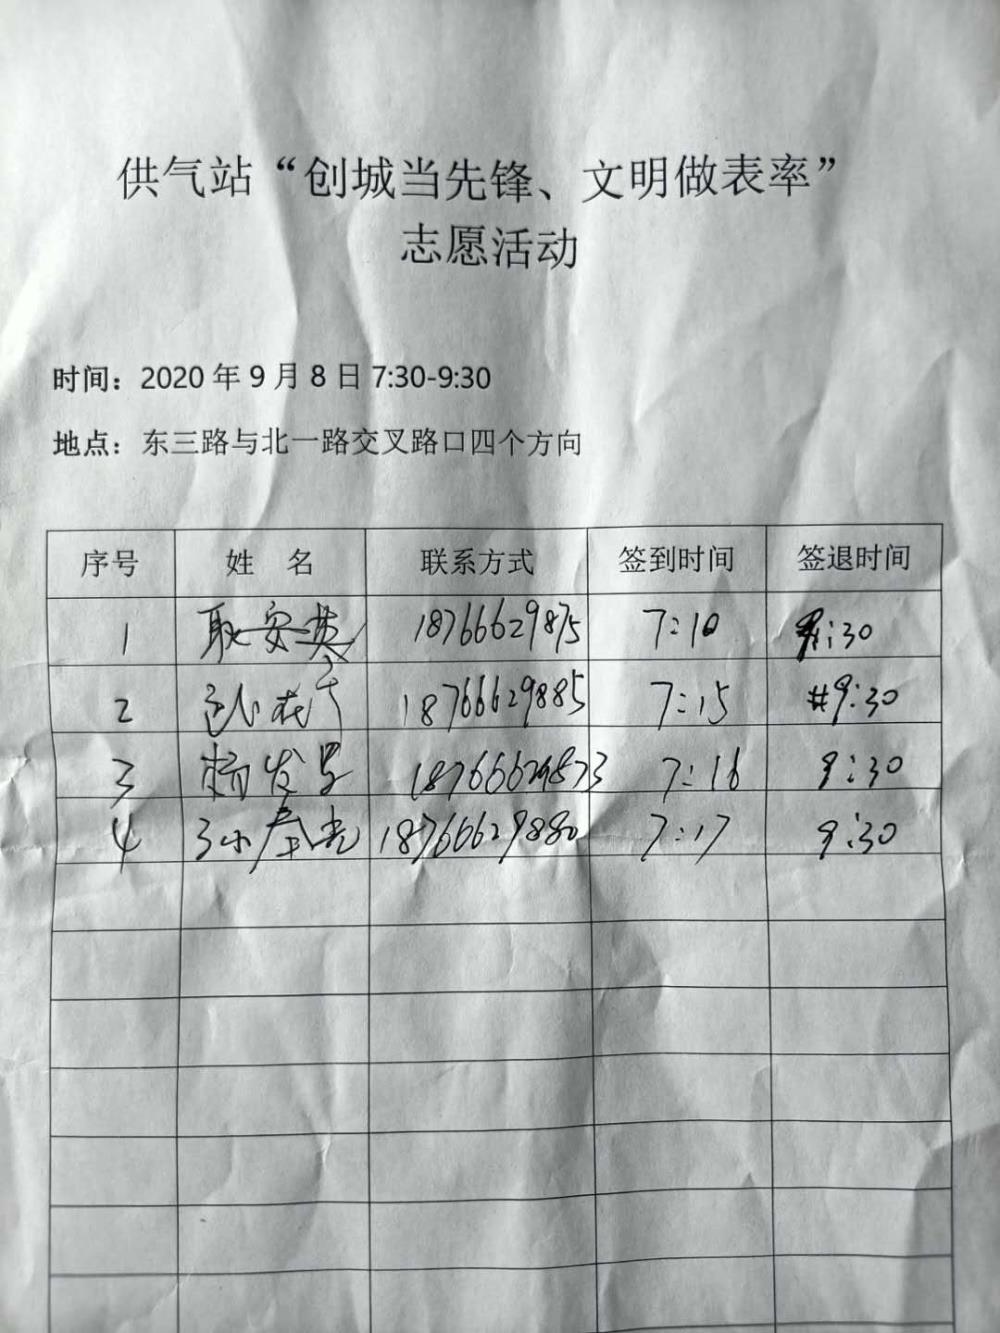 供气站“创城当先锋、文明做表率”
志愿活动
时间：2020 年 9 月 8 日 7:30-9:30
地点：东三路与北一路交叉路口四个方向
序号 姓 名 联系方式 签到时间 签退时间
1 18766629875 7:10 9:30
2 18766629885 7:15 9:30
3 杨发 7:16 9:30
4 18766629880 7:17 9:30